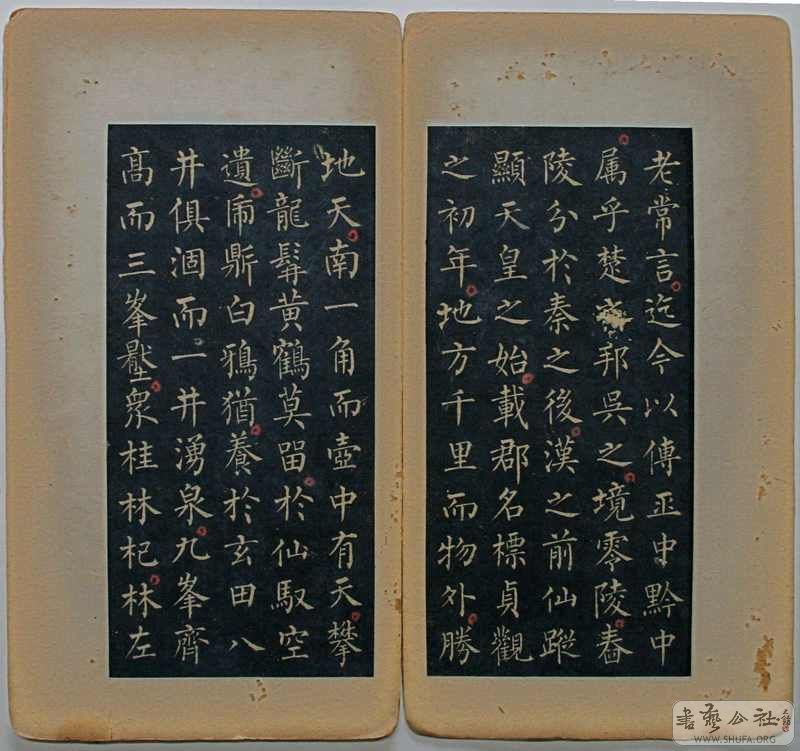 老常言迄今以傳巫中黔中
属乎楚邦吳之境零陵舂
陵分於秦之後漢之前仙蹤
顯天皇之始載郡名標貞觀
之初年地方千里而物外勝
地天南一角而壺中有天攀
斷龍髯黃鶴莫留於仙馭空
遺虎鼎白鴉猶養於玄田八
井俱涸而一井湧泉九峯齊
髙而三峯壓眾桂林杞林左
書藝公社
WWW.SHUFA.ORG